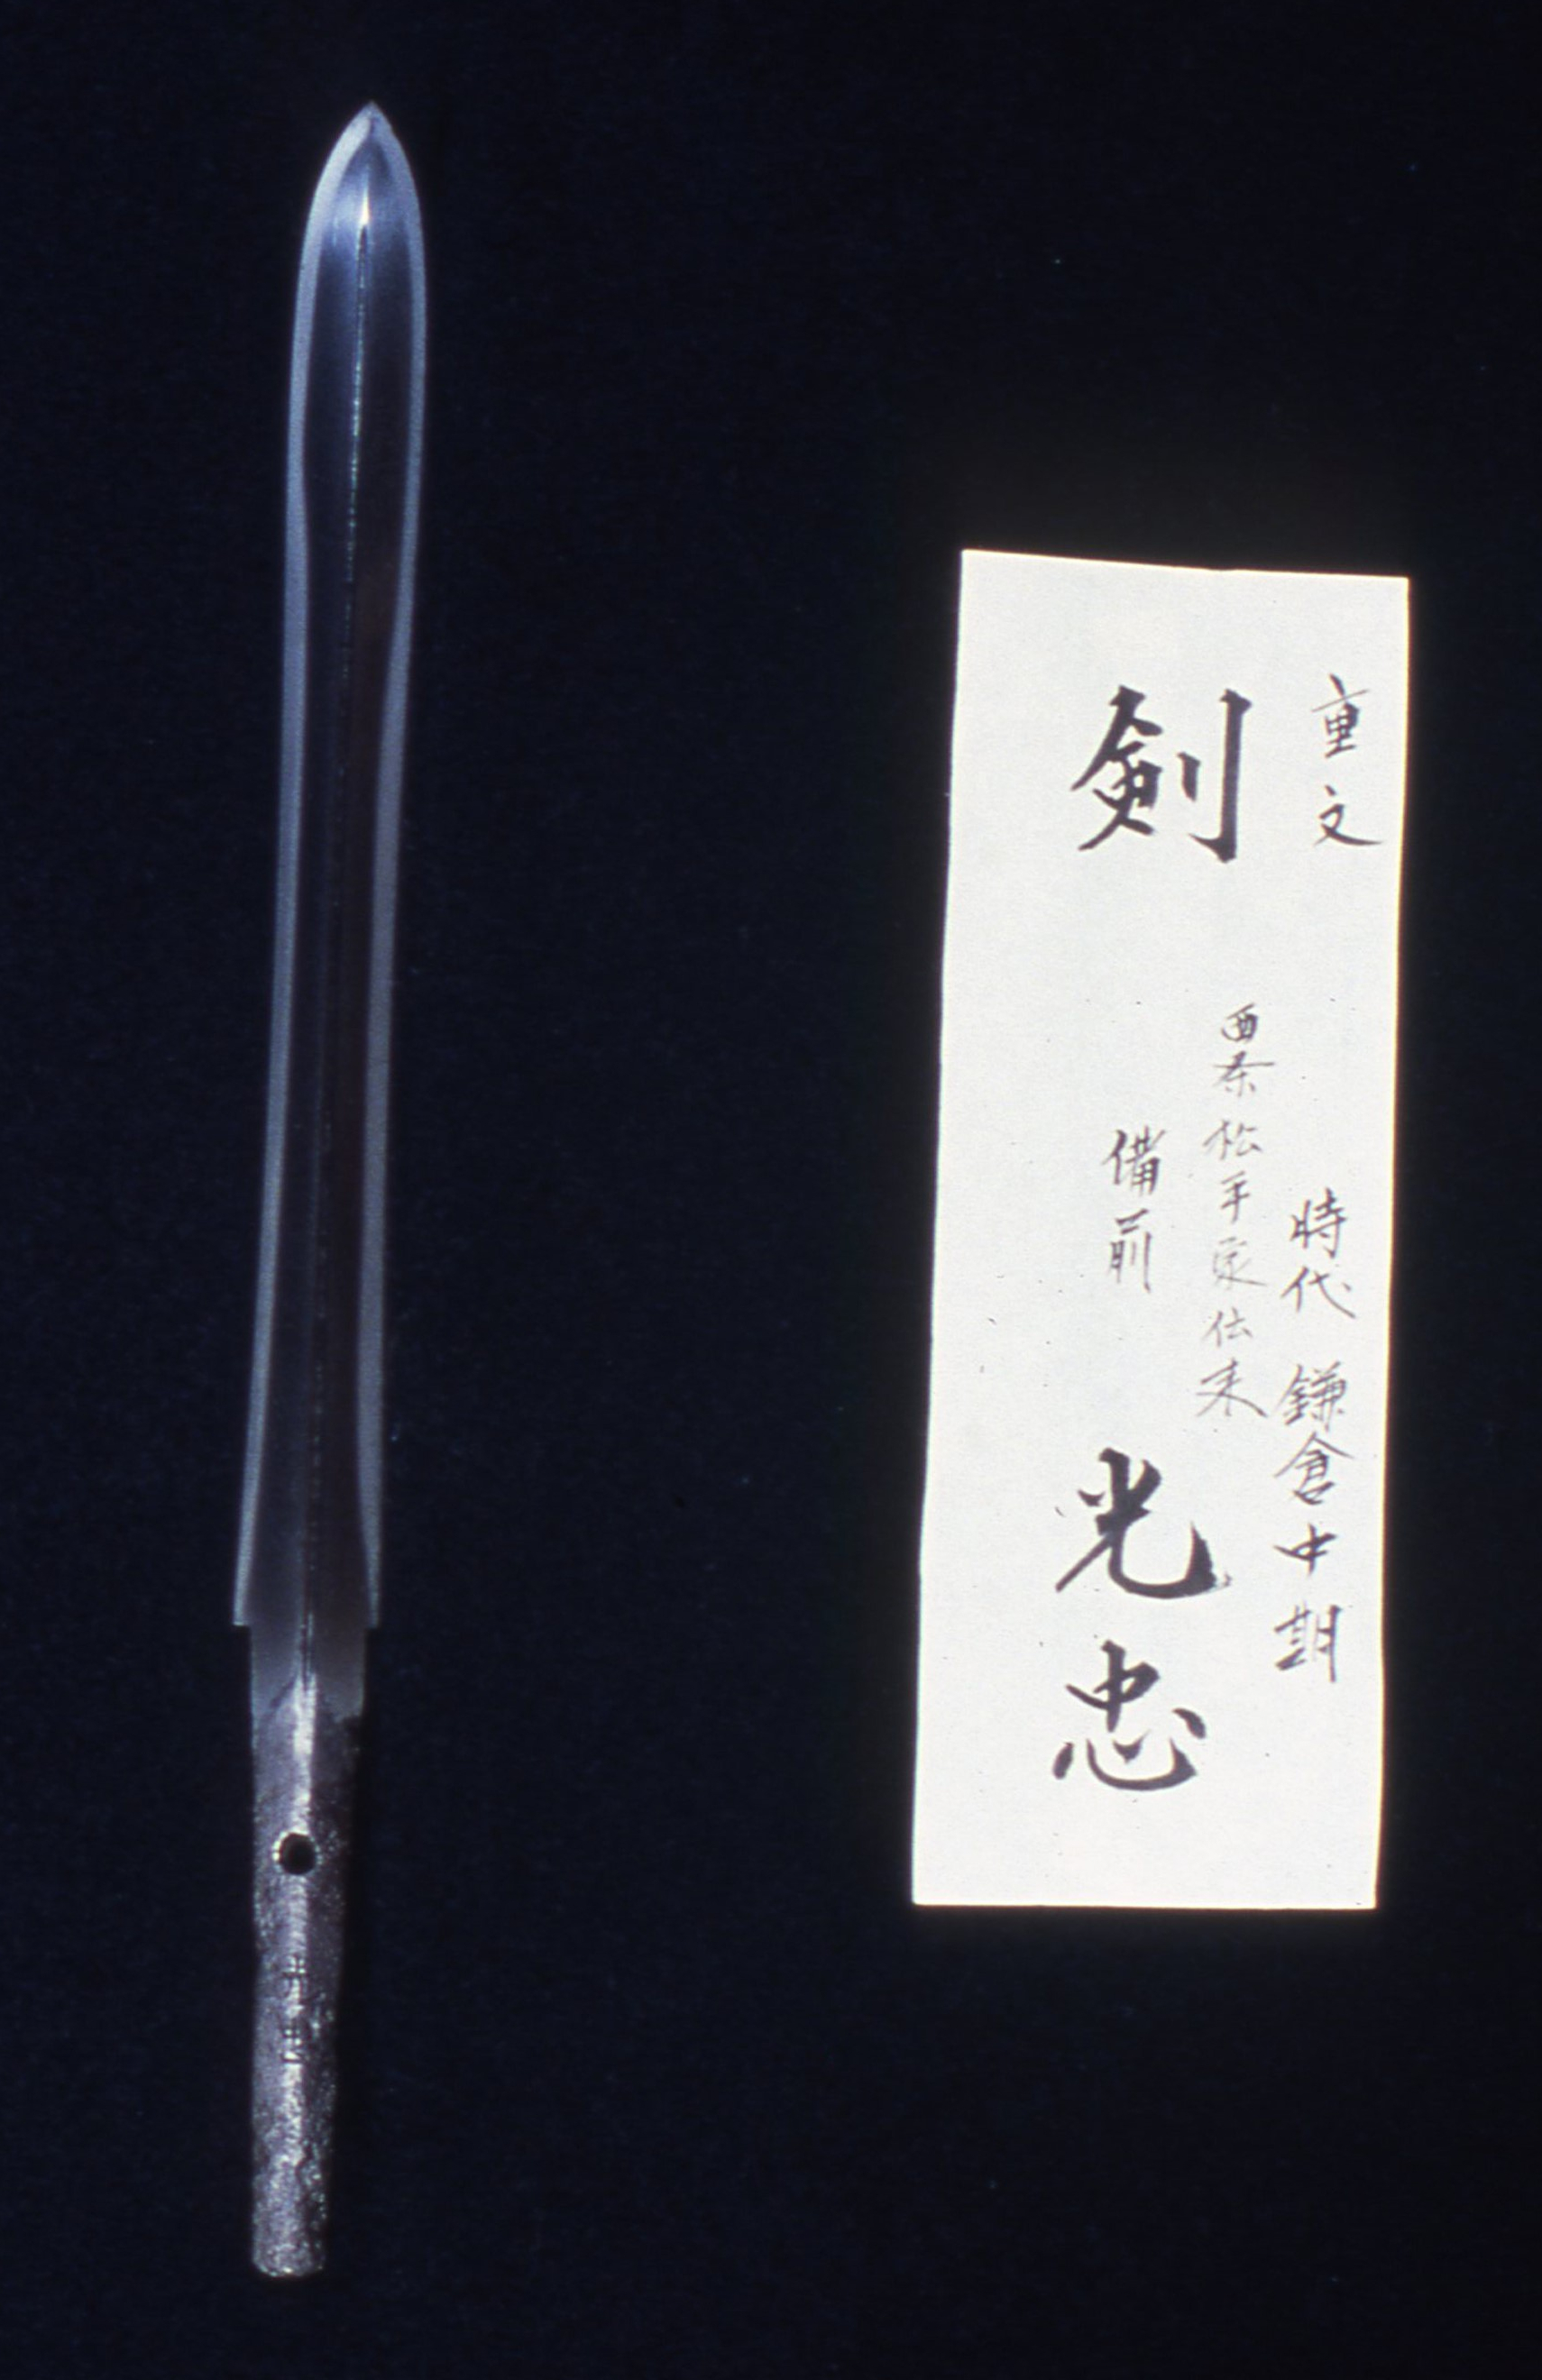 重文 時代 鎌倉中期
西条松平家伝来
剣 備前 光忠